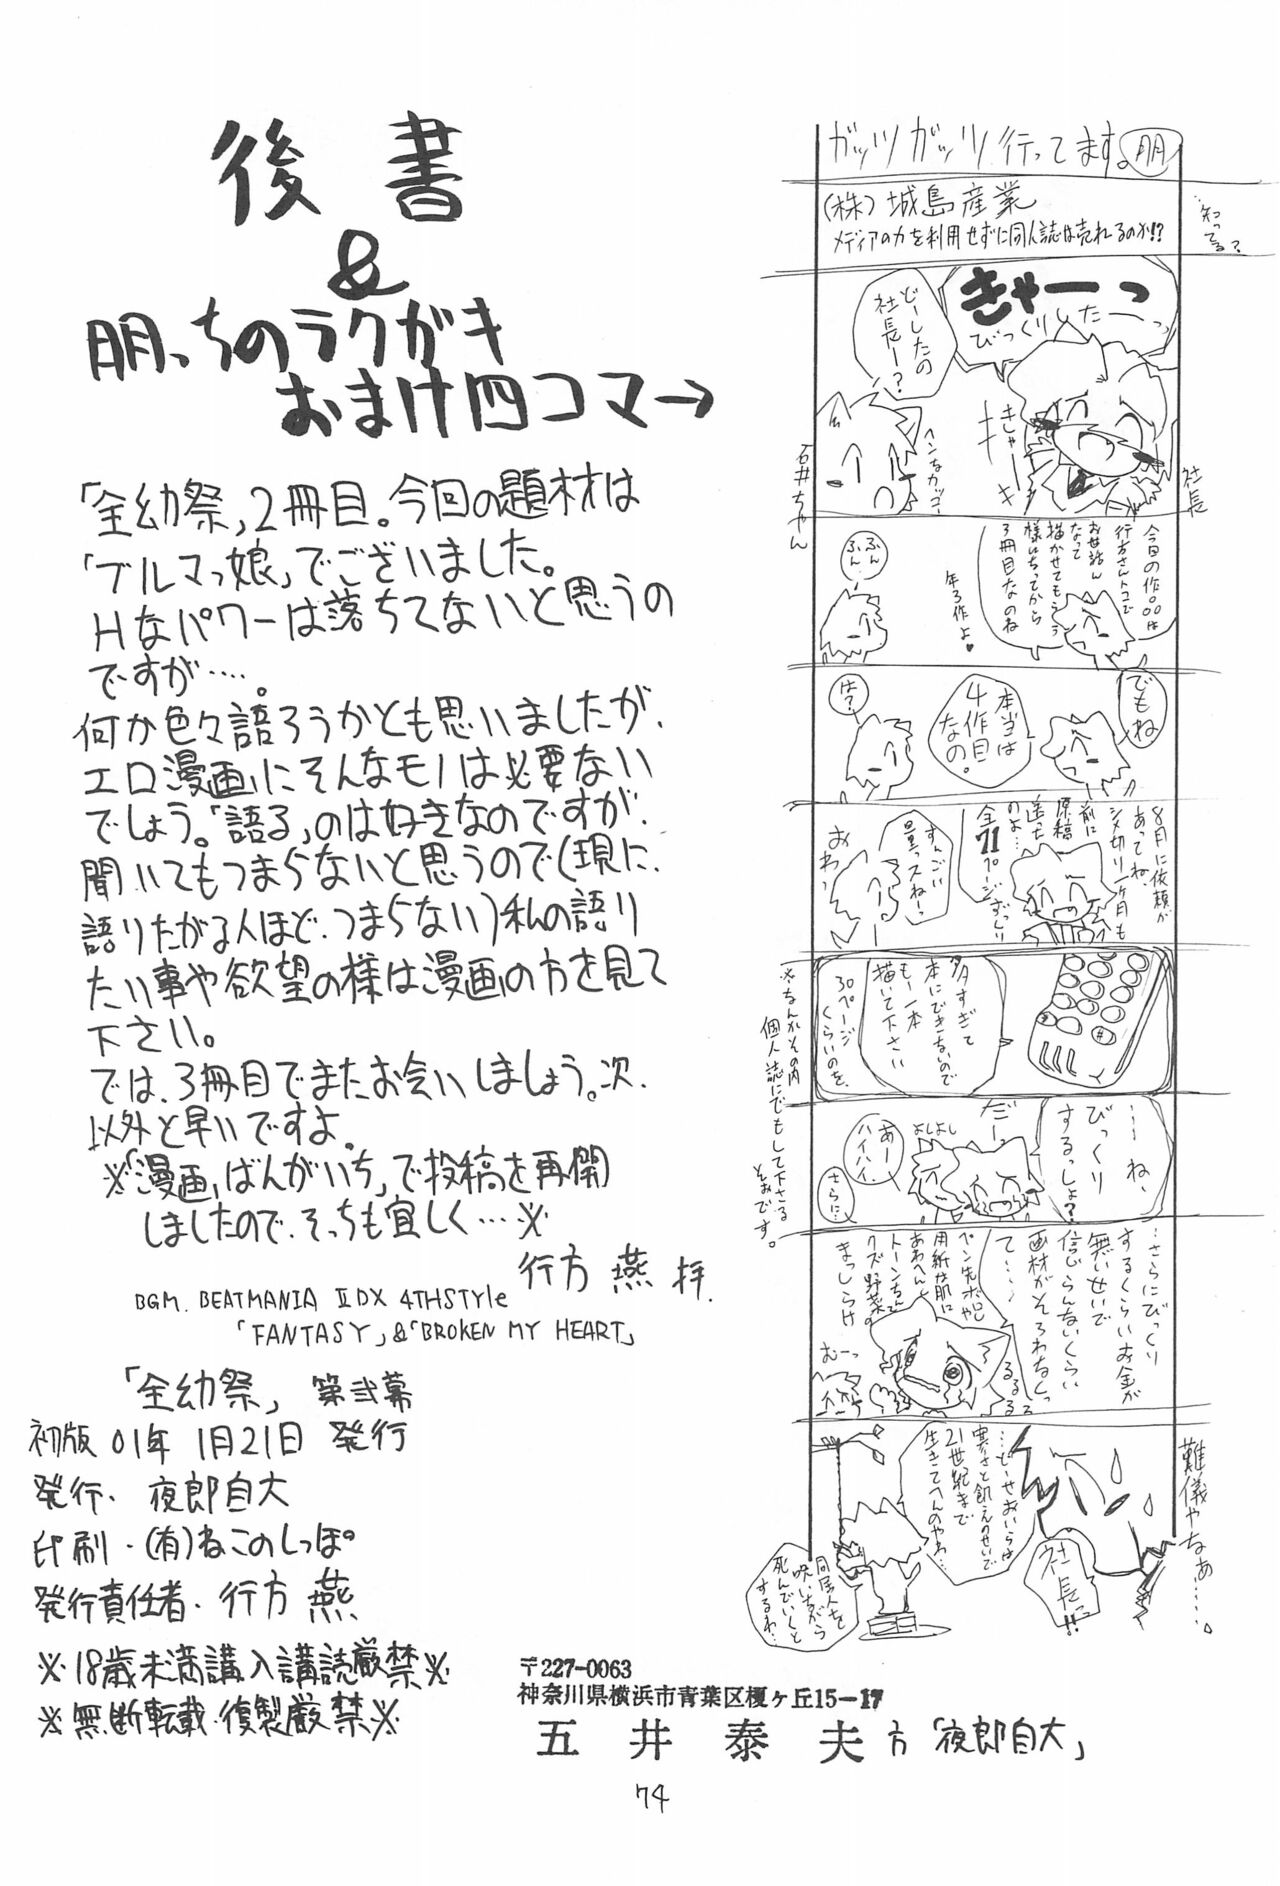 後書
&
朋っちのラクガキ
おまけ四コマ→
「全幼祭」2冊目。今回の題材は
「ブルマっ娘」でございました。
Hなパワーは落ちてないと思うの
ですが…。
何か色々語ろうかとも思いましたが、
エロ漫画にそんなモノは必要ない
でしょう。「語る」のは好きなのですが、
聞いてもつまらないと思うので(現に、
語りたがる人ほど、つまらない)私の語り
たい事や欲望の様は漫画の方を見て
下さい。
では、3冊目でまたお会いしましょう。次、
以外と早いですよ。
※「漫画ばんがいち」で投稿を再開
しましたので、そっちも宜しく…※
行方 燕 拝.
BGM. BEATMANIA ⅡDX 4THSTYLE
「FANTASY」&「BROKEN MY HEART」
「全幼祭」 第弐幕
初版 01年 1月21日 発行
発行・夜郎自大
印刷・(有)ねこのしっぽ
発行責任者・行方 燕
※18歳未満購入講読厳禁※
※無断転載・復製厳禁※
ガッツガッツ行ってます。朋
(株)城島産業
メディアの力を利用せずに同人誌は売れるのか!?
…知ってる?
きゃーっ
びっくりしたーっ
きゃーキャー
社長
どーしたの
社長ー?
石井ちゃん
お世話ん
なって
描かせてもろう
様になってから
3冊目なのね
年3作よ♥
ふん
ふん
でもね
本当は
4作目
なの。
は?
8月に依頼が
あってね、
シメ切り一ヶ月も
前に
原稿
送った
のよ…
全71ページ
すんごい
量っスねーっ
おわー
多すぎて
本にできないので
もー一本
描いて下さい
30ページ
くらいのを、
※なんかその内
個人誌にでもして下さる
そおです。
…ね、
びっくり
するっしょ?
だー
よしよし
あー
ハイハイ
さらに…
…さらにびっくり
するくらいお金が
無いせいで
信じらんないくらい
画材がそろわなくっ
て…
るるるる
ペン先ボロや
用紙は肌に
あわへんし
トーンちゃんて
クズ野菜の
まっしらけ
むーっ
難儀やなぁ……。
社長っ!!
…どーせおいらは
寒さと飢えのせいで
21世紀まで
生きてへんのやわ…
同居人を
呪いながら
死んでいくと
するわ…
〒227-0063
神奈川県横浜市青葉区榎ヶ丘15-17
五井泰夫 方 「夜郎自大」
74